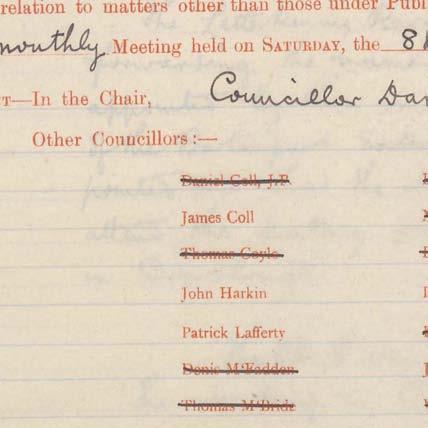 relation to matters other than those under Publ
monthly Meeting held on SATURDAY, the 8
T—In the Chair, Councillor Dan
Other Councillors:—
Daniel Coll, J.P.
James Coll
Thomas Coyle
John Harkin
Patrick Lafferty
Denis M'Fadden
Thomas M'Bride